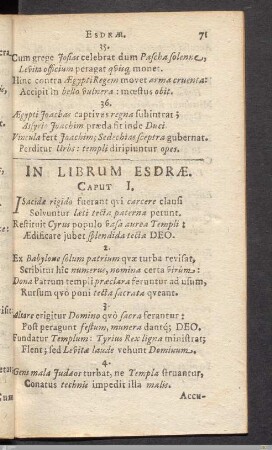 ESDRÆ. 71
35.
Cum grege Josias celebrat dum Pascha solenne,
Levita officium peragat qvisq; monet.
Hinc contra Ægypti Regem movet arma cruenta:
Accipit in bello vulnera: mœstus obit.
36.
Ægypti Joachas captivus regna subintrat;
Assyrio Joachim præda fit inde Duci.
Vascula fert Joachim; Sedechias sceptra gubernat.
Perditur Urbs: templi diripiuntur opes.
IN LIBRUM ESDRÆ.
CAPUT I.
Isacidæ rigido fuerant qvi carcere clausi
Solvuntur læti tecta paterna petunt.
Restituit Cyrus populo vasa aurea Templi:
Ædificare jubet splendida tecta DEO.
2.
Ex Babylone solum patrium qvæ turba revisat,
Scribitur hic numerus, nomina certa virûm:
Dona Patrum templi præclara feruntur ad usum,
Rursum qvò poni tecta sacrata qveant.
3.
Altare erigitur Domino qvò sacra ferantur:
Post peragunt festum, munera dantq; DEO.
Fundatur Templum: Tyrius Rex ligna ministrat;
Flent; sed Levitæ laude vehunt Dominum.
4.
Gens mala Judæos turbat, ne Templa struantur,
Conatus technis impedit illa malis.
Accu-